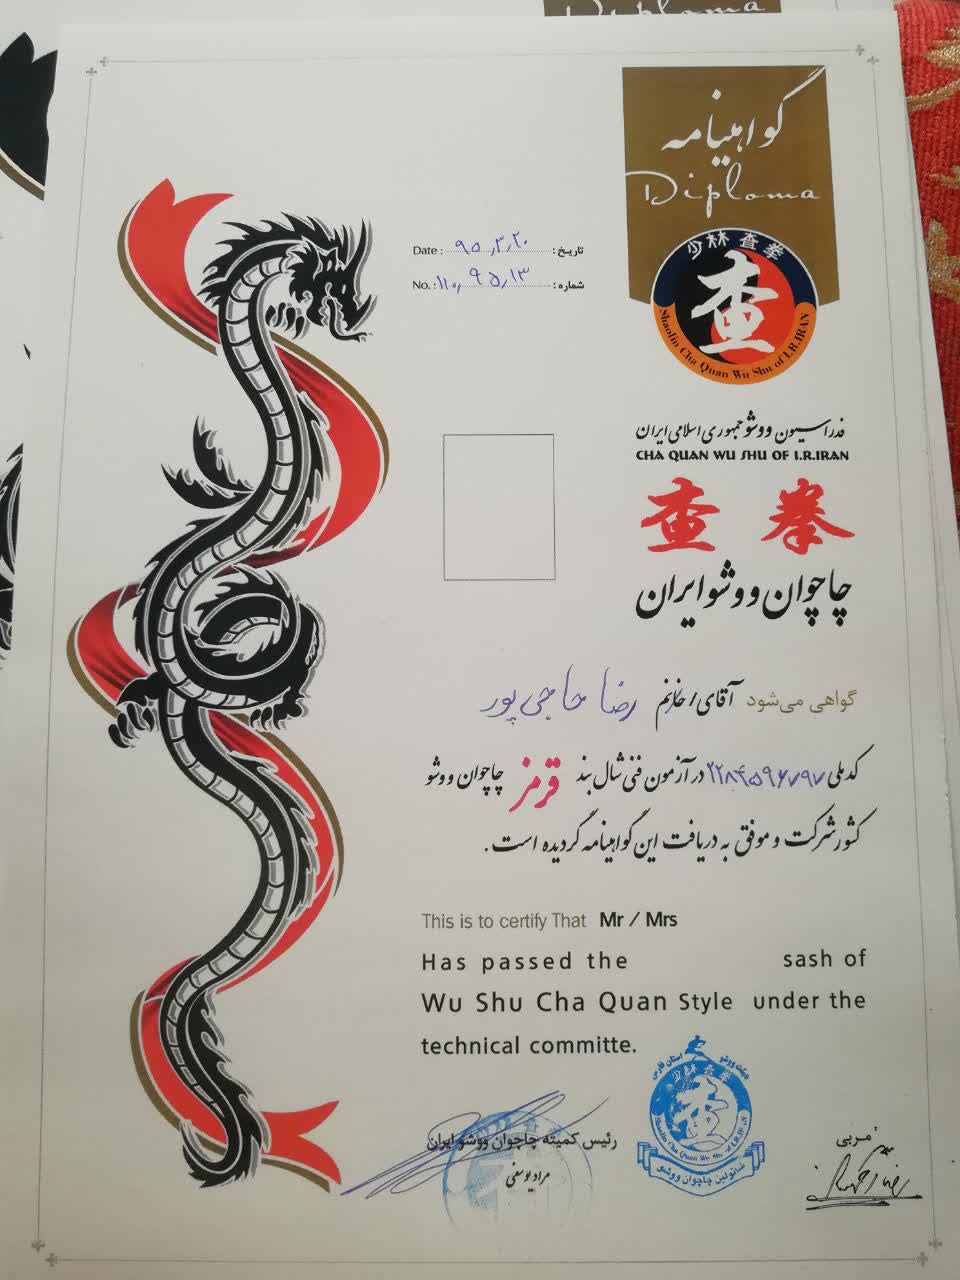 گواهینامه
Diploma
少林 查拳
查
Shaolin Cha Quan Wu Shu of I.R.IRAN
Date : ۹۵٫۳٫۲۰ تاریخ :
No. : ۱۱۰٫۹۵٫۱۳ شماره :
فدراسیون ووشو جمهوری اسلامی ایران
CHA QUAN WU SHU OF I.R.IRAN
查 拳
چاچوان ووشو ایران
گواهی می‌شود آقای / خانم رضا حاجی پور
کد ملی ۲۲۸۴۵۹۶۷۹۷ در آزمون فنی شال بند قرمز چاچوان ووشو
کشور شرکت و موفق به دریافت این گواهینامه گردیده است .
This is to certify That Mr / Mrs
Has passed the sash of
Wu Shu Cha Quan Style under the
technical committe.
هیئت ووشو استان فارس
少林 查拳
Shaolin Cha Quan Wu Shu of I.R.IRAN
شائولین چاچوان ووشو
رئیس کمیته چاچوان ووشو ایران
مراد یوسفی
مربی